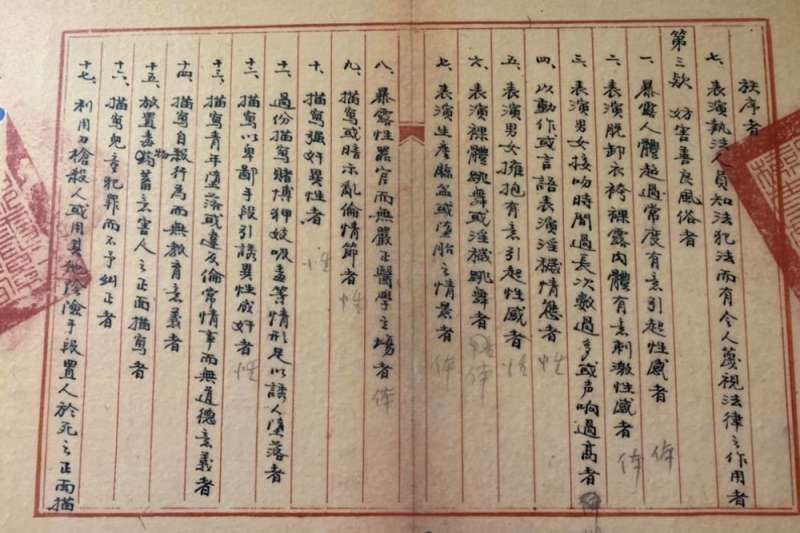 秩序者
七、表演執法人員知法犯法而有令人蔑視法律之作用者
第三欵 妨害善良風俗者
一、暴露人體超過常度有意引起性感者 体
二、表演脫卸衣袴裸露肉體有意刺激性感者 体
三、表演男女接吻時間過長次數過多或声响過高者
四、以動作或言語表演淫穢情態者 性
五、表演男女擁抱有意引起性感者 性
六、表演裸體跳舞或淫穢跳舞者 体
七、表演生產臨盆或墮胎之情景者 体
八、暴露性器官而無嚴正醫學立場者 体
九、描寫或暗示亂倫情節者 性
十、描寫强奸異性者 性
十一、過份描寫賭博狎妓吸毒等情形足以誘人墮落者
十二、描寫以卑鄙手段引誘異性成奸者 性
十三、描寫青年墮落或違反倫常情事而無道德意義者
十四、描寫自殺行為而無教育意義者
十五、放置毒物蓄意害人之正面描寫者
十六、描寫兒童犯罪而不予糾正者
十七、利用刀槍殺人或用其他陰險手段置人於死之正面描